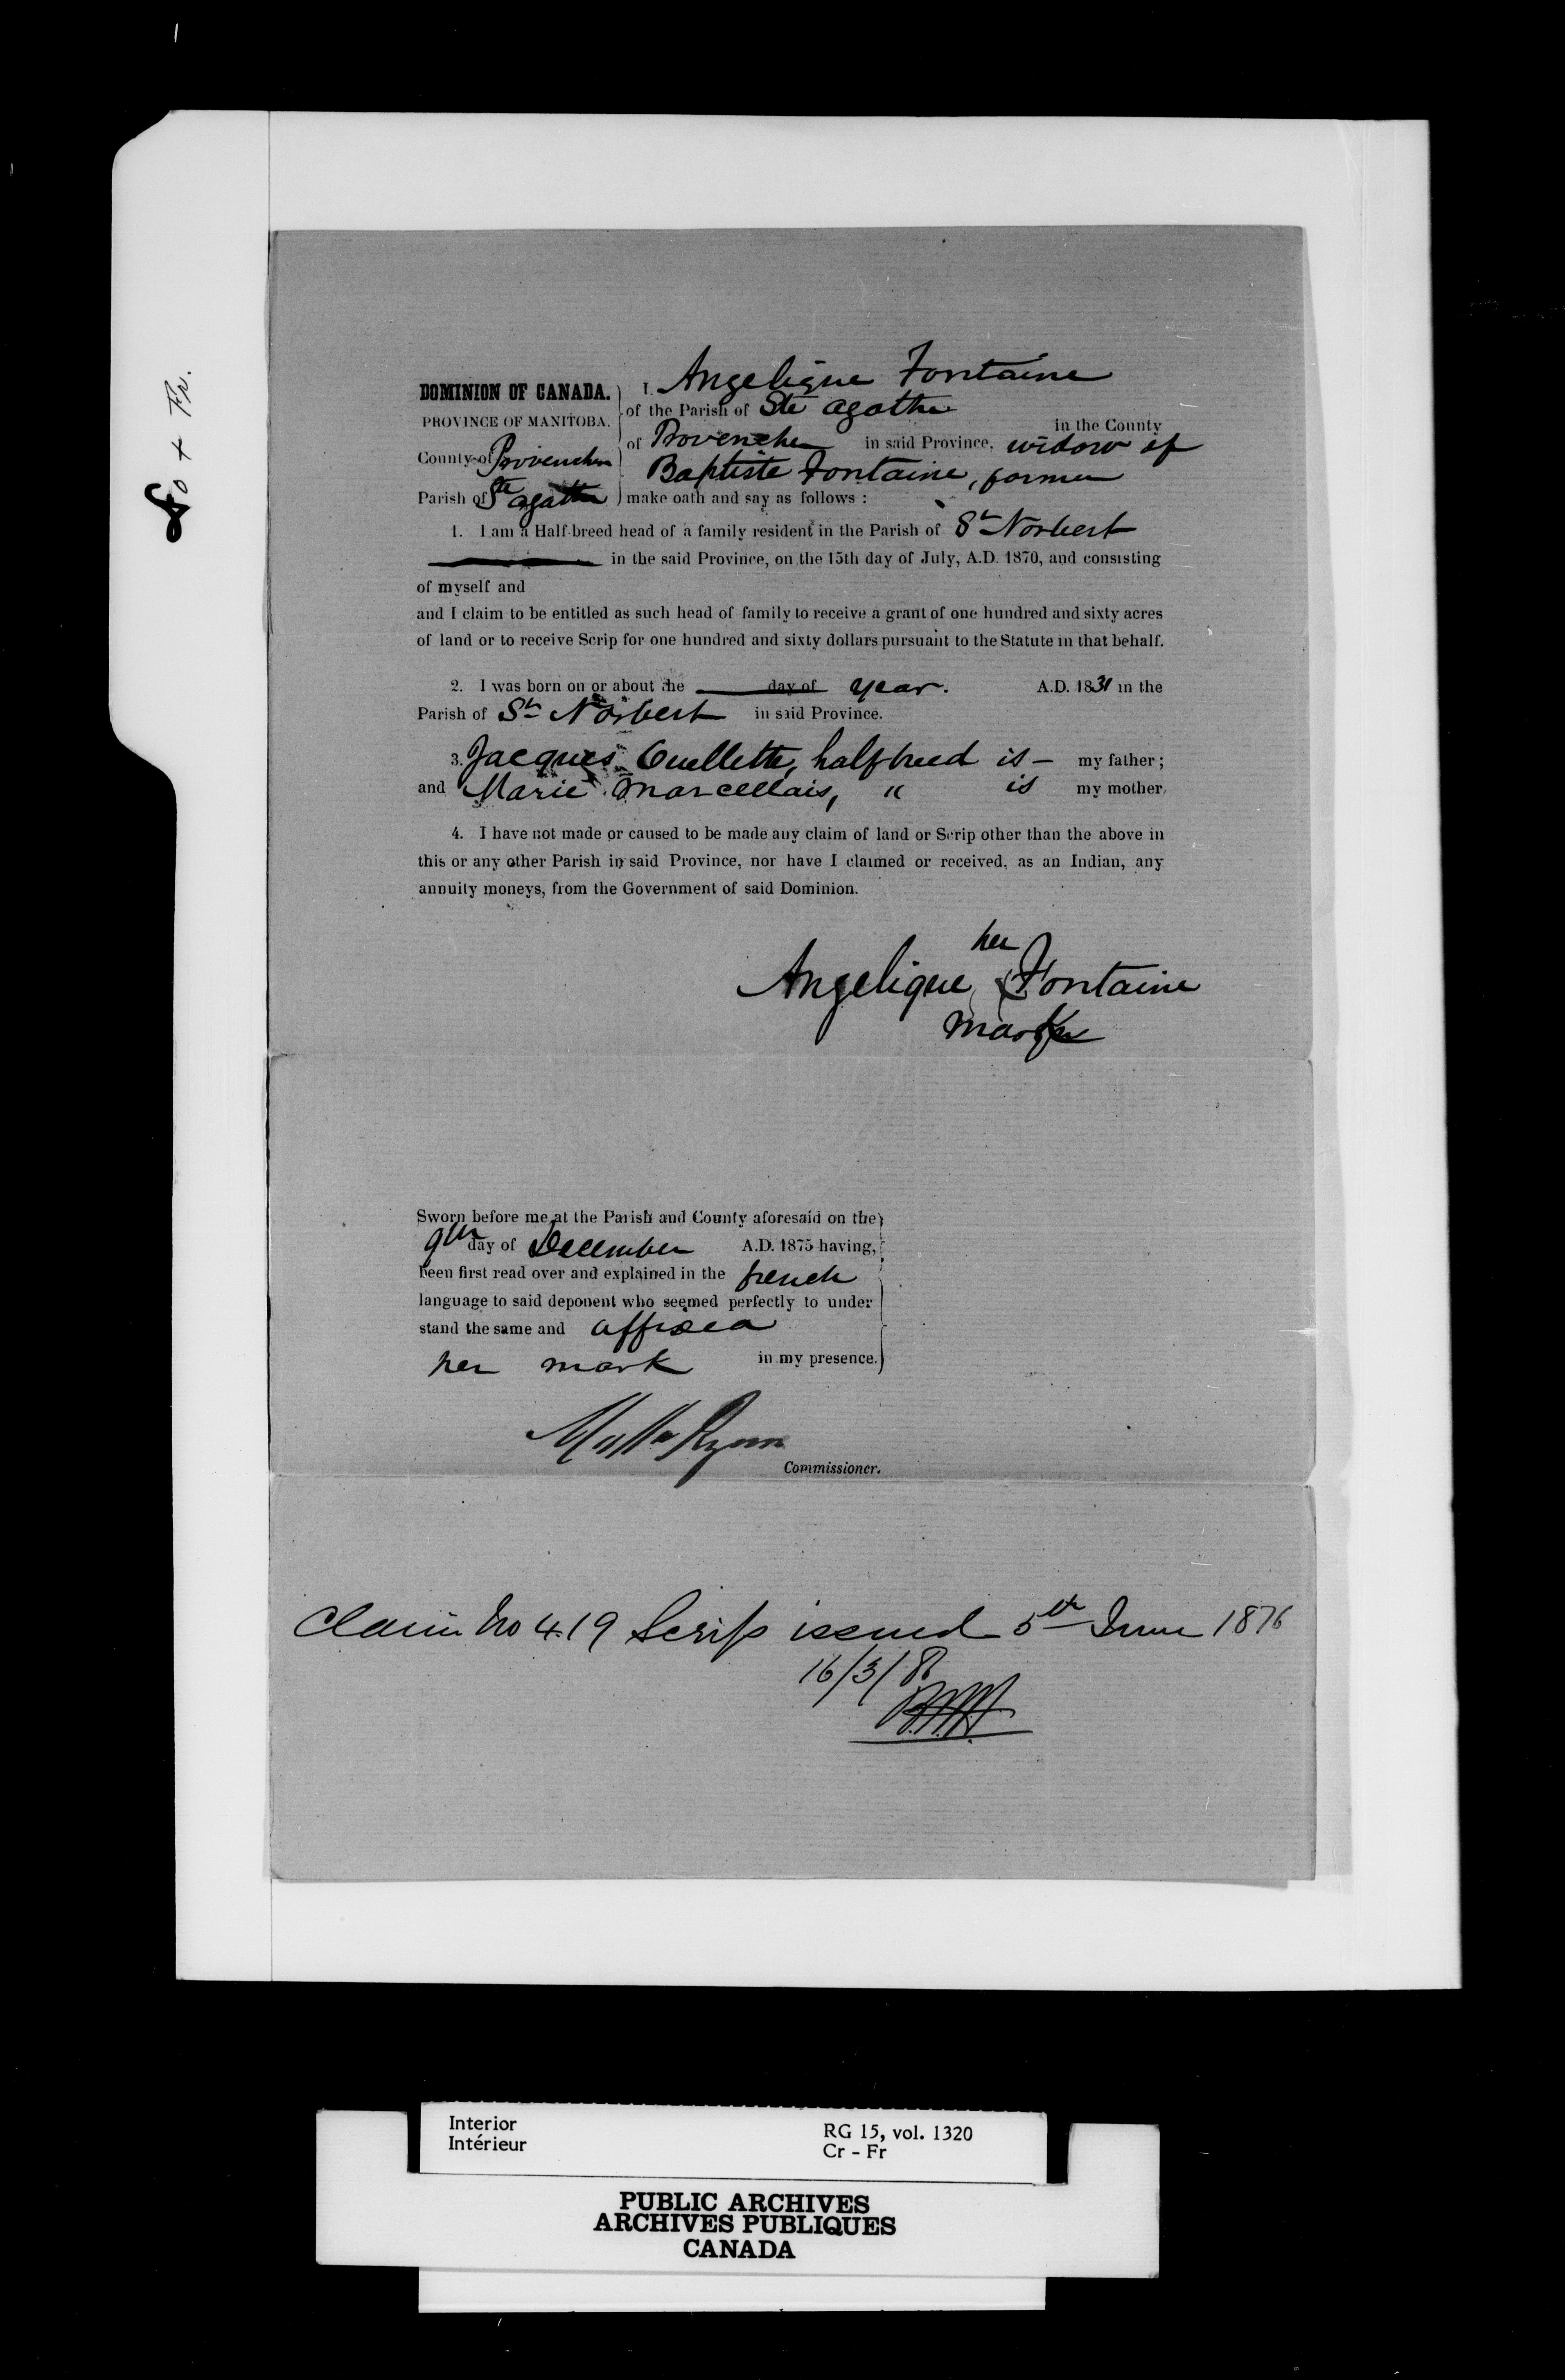 Fo + Fr.
DOMINION OF CANADA.
PROVINCE OF MANITOBA.
County of Provencher
Parish of Ste agathe
I. Angelique Fontaine
of the Parish of Ste agathe
in the County
of Provencher in said Province, widow of
Baptiste Fontaine, farmer
make oath and say as follows :
1. I am a Half-breed head of a family resident in the Parish of St Norbert
in the said Province, on the 15th day of July, A.D. 1870, and consisting
of myself and
and I claim to be entitled as such head of family to receive a grant of one hundred and sixty acres
of land or to receive Scrip for one hundred and sixty dollars pursuant to the Statute in that behalf.
2. I was born on or about the day of year. A.D. 1831 in the
Parish of St Norbert in said Province.
3. Jacques Ouellette, halfbreed is – my father ;
and Marie Marcellais, " is my mother
4. I have not made or caused to be made any claim of land or Scrip other than the above in
this or any other Parish in said Province, nor have I claimed or received, as an Indian, any
annuity moneys, from the Government of said Dominion.
her
Angelique X Fontaine
mark
Sworn before me at the Parish and County aforesaid on the
9th day of December A.D. 1875 having,
been first read over and explained in the french
language to said deponent who seemed perfectly to under
stand the same and affixed
her mark in my presence.
Ryan
Commissioner.
Claim No 419 Scrip issued 5th June 1876
16/3/8
Interior
Intérieur
RG 15, vol. 1320
Cr - Fr
PUBLIC ARCHIVES
ARCHIVES PUBLIQUES
CANADA